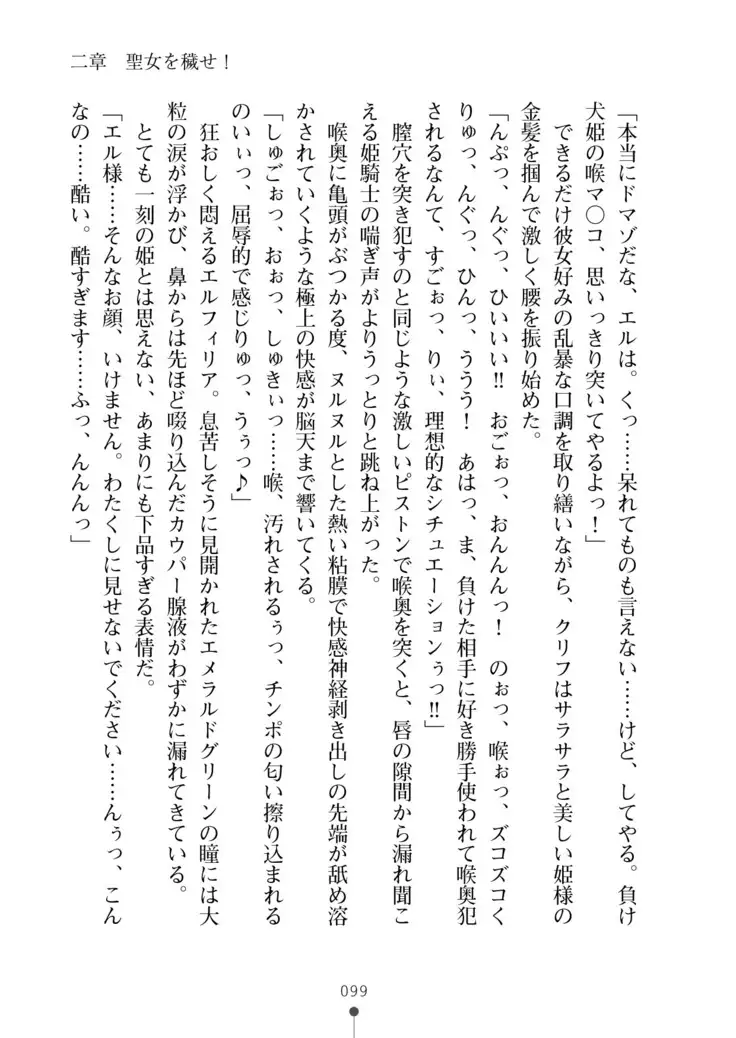 二章　聖女を穢せ！
「本当にドマゾだな、エルは。くっ……呆れてものも言えない……けど、してやる。負け
犬姫の喉マ〇コ、思いっきり突いてやるよっ！」
できるだけ彼女好みの乱暴な口調を取り繕いながら、クリフはサラサラと美しい姫様の
金髪を掴んで激しく腰を振り始めた。
「んぷっ、んぐっ、ひいいい‼　おごぉっ、おんんんっ！　のぉっ、喉ぉっ、ズコズコく
りゅっ、んぐっ、ひんっ、ううう！　あはっ、ま、負けた相手に好き勝手使われて喉奥犯
されるなんて、すごぉっ、りぃ、理想的なシチュエーションぅっ‼」
膣穴を突き犯すのと同じような激しいピストンで喉奥を突くと、唇の隙間から漏れ聞こ
える姫騎士の喘ぎ声がよりうっとりと跳ね上がった。
喉奥に亀頭がぶつかる度、ヌルヌルとした熱い粘膜で快感神経剥き出しの先端が舐め溶
かされていくような極上の快感が脳天まで響いてくる。
「しゅごぉっ、おぉっ、しゅきぃっ……喉、汚れされるぅっ、チンポの匂い擦り込まれる
のいぃっ、屈辱的で感じりゅっ、うぅっ♪」
狂おしく悶えるエルフィリア。息苦しそうに見開かれたエメラルドグリーンの瞳には大
粒の涙が浮かび、鼻からは先ほど啜り込んだカウパー腺液がわずかに漏れてきている。
とても一刻の姫とは思えない、あまりにも下品すぎる表情だ。
「エル様……そんなお顔、いけません。わたくしに見せないでください……んぅっ、こん
なの……酷い。酷すぎます……ふっ、んんんっ」
099